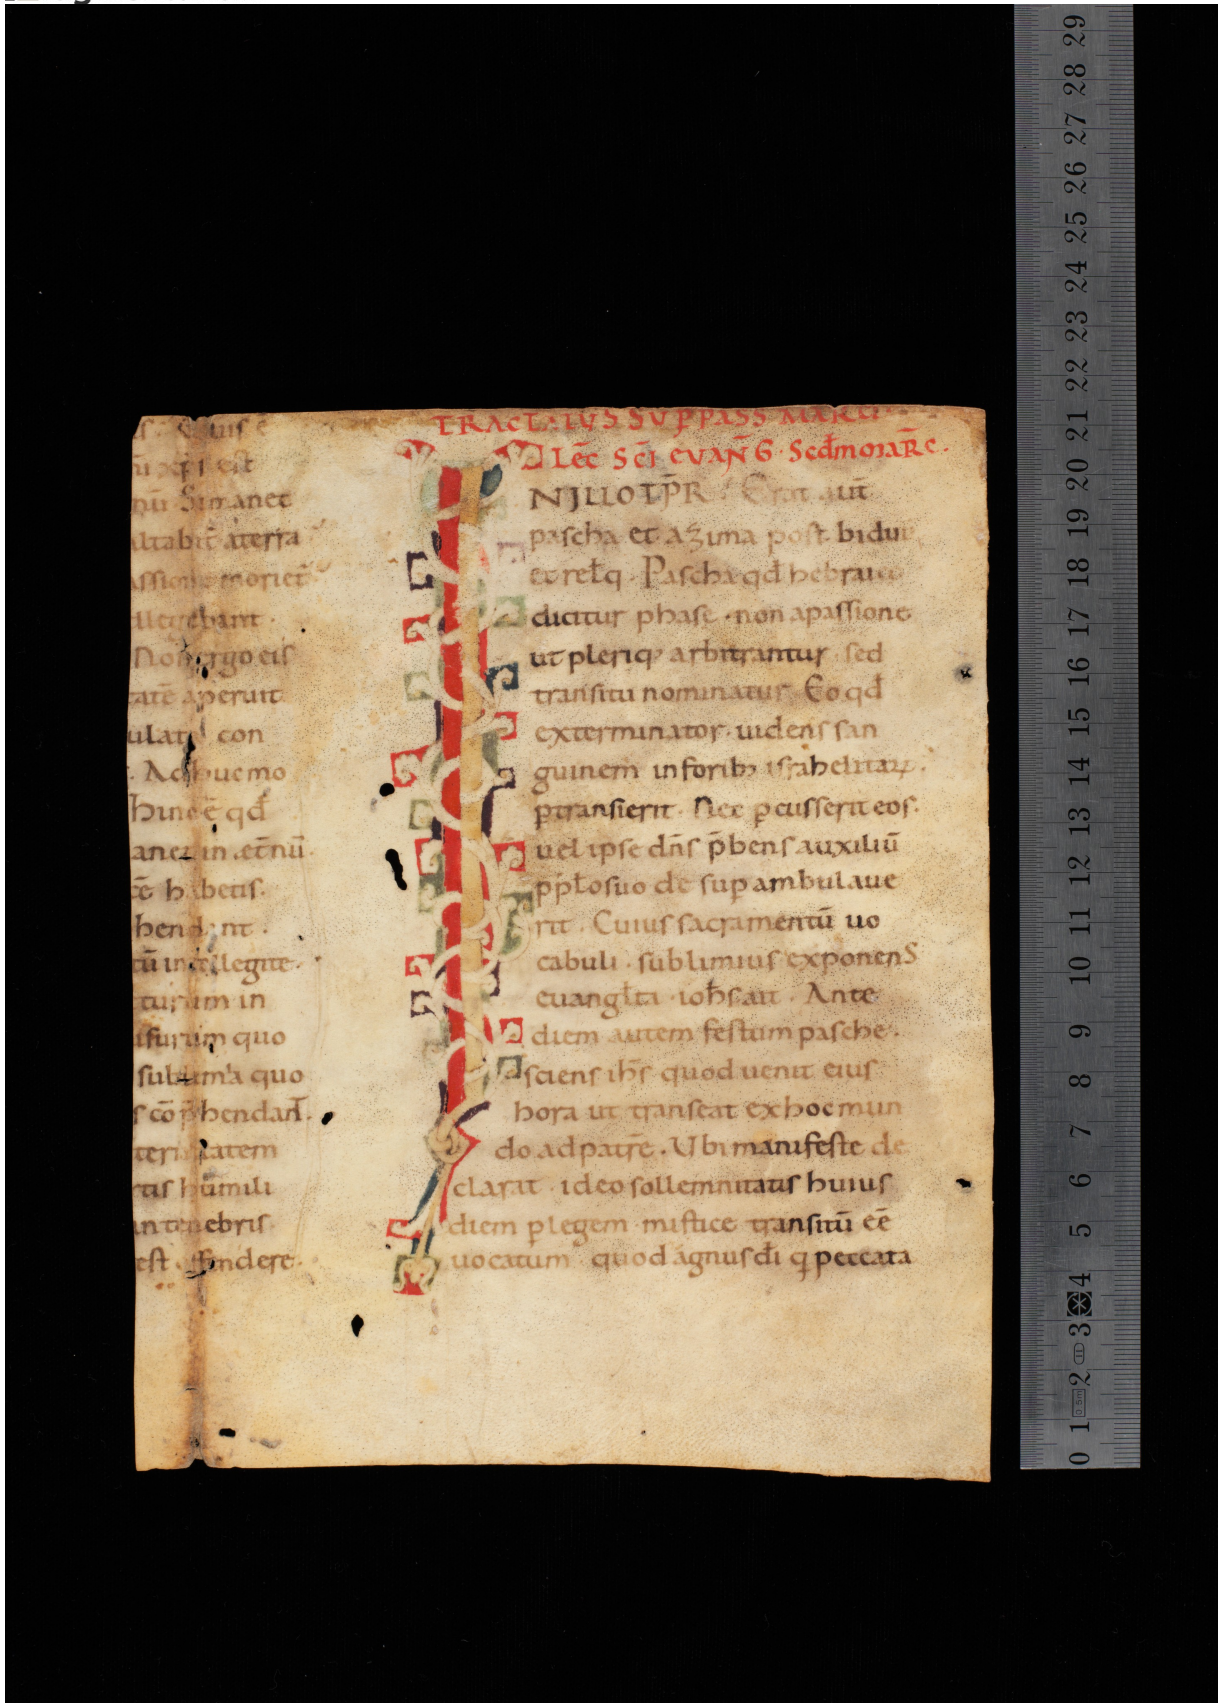 est
Simanet
altabit aterra
moriet
Non ergo eis
aperuit
con
Adhuc mo
hinc ē qd̄
in etnū
habetis
quo
quo
humili
est offendere
TRACTATUS SUP PASS MARCI
Lēc SC̄I EVANḠ Scd̄m
N ILLO TP̄R Erat aut̄
pascha et azima post biduū
et relq Pascha qd̄ hebraice
dicitur phase · non apassione
ut pleriq; arbitrantur · sed
transitu nominatur · Eo qd̄
exterminator · uidens san
guinem inforib; israhelitarum ·
ptransierit · Nec pcusserit eos ·
uel ipse dn̄s p̄bens auxiliū
pplo suo de sup ambulaue
rit · Cuius sacramentū uo
cabuli · sublimius exponenS
euanglta · ioh̄s ait · Ante
diem autem festum pasche ·
sciens ih̄s quod uenit eius
hora ut transeat ex hoc mun
do ad patrē · Ubi manifeste de
clarat · ideo sollemnitatis huius
diem plegem · mistice transitū eē
uocatum · quod agnus dī q peccata
0 1 2 3 4 5 6 7 8 9 10 11 12 13 14 15 16 17 18 19 20 21 22 23 24 25 26 27 28 29